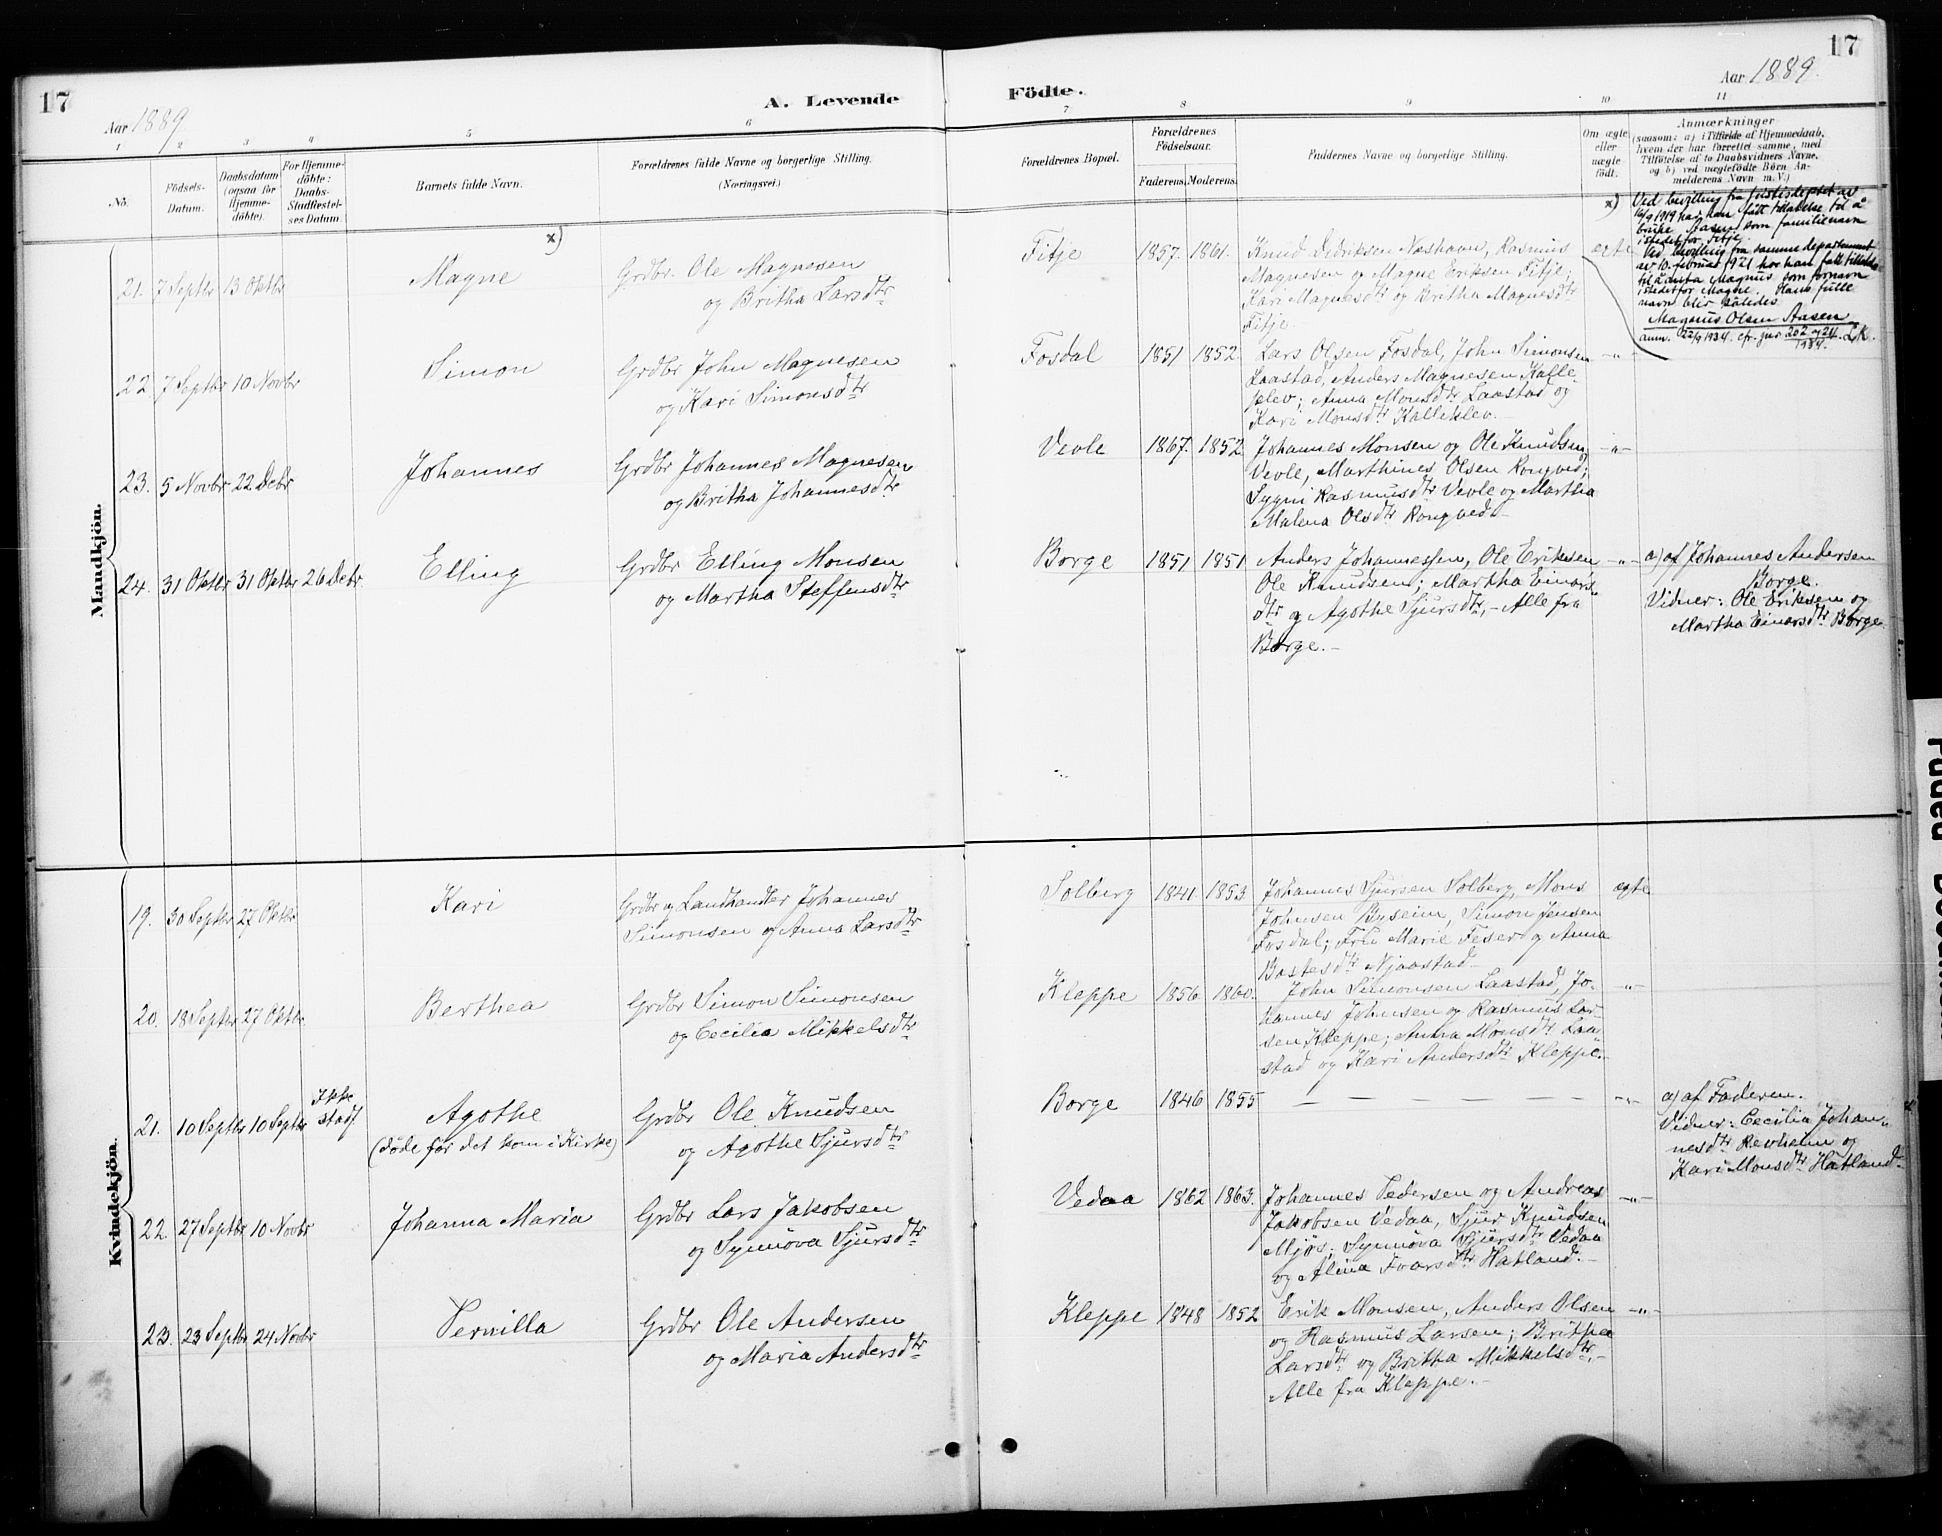 17
Aar 1889
A. Levende
Födte.
Aar 1889.
17
1 2 3 4 5 6 7 8 9 10 11
No.
Födsels-
Datum.
Daabsdatum
(ogsaa for
Hjemme-
döbte).
For Hjemme-
döbte:
Daabs-
Stadfæstel-
ses Datum.
Barnets fulde Navn.
Forældrenes fulde Navne og borgerlige Stilling.
(Næringsvei.)
Forældrenes Bopæl.
Forældrenes
Födselsaar.
Faderens. Moderens.
Faddernes Navne og borgerlige Stilling.
Om ægte
eller
uægte
födt.
Anmærkninger
(saasom: a) i Tilfælde af Hjemmedaab,
hvem der har forrettet samme, med
Tilföielse af to Daabsvidners Navne,
og b) ved uægtefödte Börn An-
melderens Navn m. V.)
Mandkjön.
21. 7 Septbr 13 Oktbr
x)
Magne
Grdbr. Ole Magnesen
og Britha Larsdtr
Fitje
1857. 1861.
Knud Didriksen Næshavn, Rasmus
Magnesen og Magne Eriksen Fitje;
Kari Magnesdtr og Britha Magnesdtr
Fitje.
ægte
x) Ved bevilling fra justisdeptet av
16/9 1919 har han fått tillatelse til å
bruke Aasen som familienavn
istedetfor Fitje.
Ved bevilling fra samme departement
av 10. februar 1921 har han fått tillatelse
til å anta Magnus som fornavn
istedetfor Magne. Hans fulle
navn blir således
Magnus Olsen Aasen
anm. 22/9 1934. cfr. jnr 202 og 211/1934. LK.
22. 7 Septbr 10 Novbr
Simon
Grdbr John Magnesen
og Kari Simonsdtr
Fosdal
1851 1852.
Lars Olsen Fosdal, John Simonsen
Laastad, Anders Magnesen Kalle-
klev; Anna Monsdtr Laastad og
Kari Monsdtr Kalleklev.
-"-
23. 5 Novbr 22 Debr
Johannes
Grdbr Johannes Magnesen
og Britha Johannesdtr
Vevle
1867. 1852.
Johannes Monsen og Ole Knudsen
Vevle, Marthines Olsen Rongved;
Sygni Rasmusdtr Vevle og Martha
Malena Olsdtr Rongved.
-"-
24. 31 Oktbr 31 Oktbr 26 Debr
Elling
Grdbr Elling Monsen
og Martha Steffensdtr
Borge
1851 1851
Anders Johannessen, Ole Eriksen
Ole Knudsen; Martha Einars-
dtr og Agothe Sjursdtr, - Alle fra
Borge.
-"-
a) af Johannes Andersen
Borge.
Vidner: Ole Eriksen og
Martha Einarsdtr Borge.
Kvindekjön.
19. 30 Septbr 27 Oktbr
Kari
Grdbr og Landhandler Johannes
Simonsen og Anna Larsdtr
Solberg
1841 1853.
Johannes Sjursen Solberg, Mons
Johnsen Byseim, Simon Jensen
Fosdal; Frk Marie Feser og Anna
Bastesdtr Njaastad
ægte
20. 18 Septbr 27 Oktbr
Berthea
Grdbr Simon Simonsen
og Cecilia Mikkelsdtr
Kleppe
1856 1860.
John Simonsen Laastad, Jo-
hannes Johnsen og Rasmus Lar-
sen Kleppe; Anna Monsdtr Laa-
stad og Kari Andersdtr Kleppe.
-"-
21. 10 Septbr 10 Septbr Ikke
stadf.
Agothe
(døde før det kom i Kirke)
Grdbr Ole Knudsen
og Agothe Sjursdtr
Borge
1846 1855
— — — — —
-"-
a) af Faderen.
Vidner: Cecilia Johan-
nesdtr Revheim og
Kari Monsdtr Hatland.
22. 27 Septbr 10 Novbr
Johanna Maria
Grdbr Lars Jakobsen
og Synnöva Sjursdtr
Vedaa
1862 1863.
Johannes Pedersen og Andreas
Jakobsen Vedaa, Sjur Knudsen
Mjøs; Synnöva Sjursdtr Vedaa
og Alina Ivarsdtr Hatland.
-"-
23. 23 Septbr 24 Novbr
Pernilla
Grdbr Ole Andersen
og Maria Andersdtr
Kleppe
1848 1852
Erik Monsen, Anders Olsen
og Rasmus Larsen; Britha
Larsdtr og Britha Mikkelsdtr,
Alle fra Kleppe.
-"-